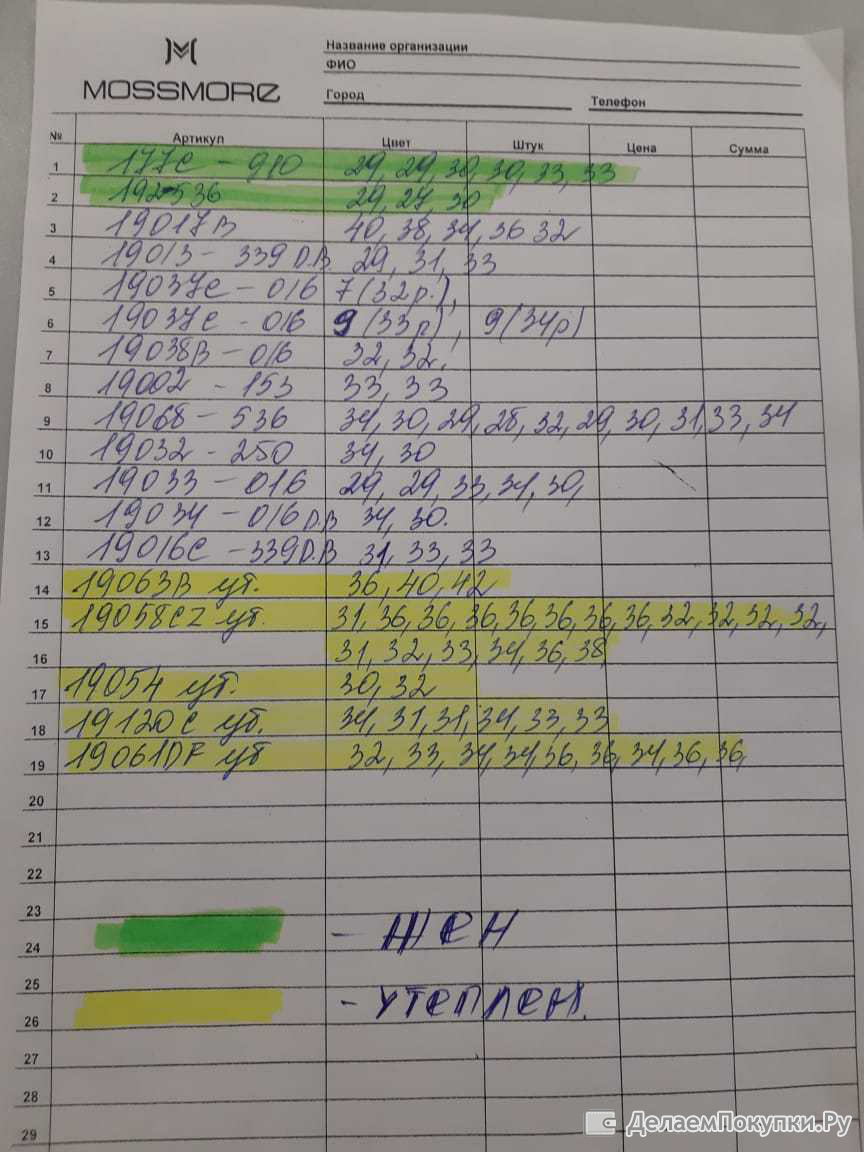 MOSSMORE
Название организации
ФИО
Город Телефон
№ Артикул Цвет Штук Цена Сумма
1 177C - 910 29, 29, 30, 30, 33, 33
2 192-536 29, 27, 30
3 19017B 40, 38, 34, 36 32
4 19013 - 339 D.B 29, 31, 33
5 19037C - 016 7 (32р.),
6 19037C - 016 9 (33р), 9 (34р)
7 19038B - 016 32, 32.
8 19002 - 153 33, 33
9 19068 - 536 34, 30, 29, 28, 32, 29, 30, 31, 33, 34
10 19032 - 250 34, 30
11 19033 - 016 29, 29, 33, 34, 30,
12 19034 - 016 D.B 34, 30.
13 19016C - 339D.B 31, 33, 33
14 19063B ут. 36, 40, 42
15 19058CZ ут. 31, 36, 36, 36, 36, 36, 36, 36, 32, 32, 32, 32,
16 31, 32, 33, 34, 36, 38
17 19054 ут. 30, 32
18 19120C ут. 34, 31, 31, 34, 33, 33
19 19061DF ут 32, 33, 34, 34, 36, 36, 34, 36, 36,
20
21
22
23
24 - ЖЕН
25
26 - УТЕПЛЕН.
27
28
29
ДелаемПокупки.Ру